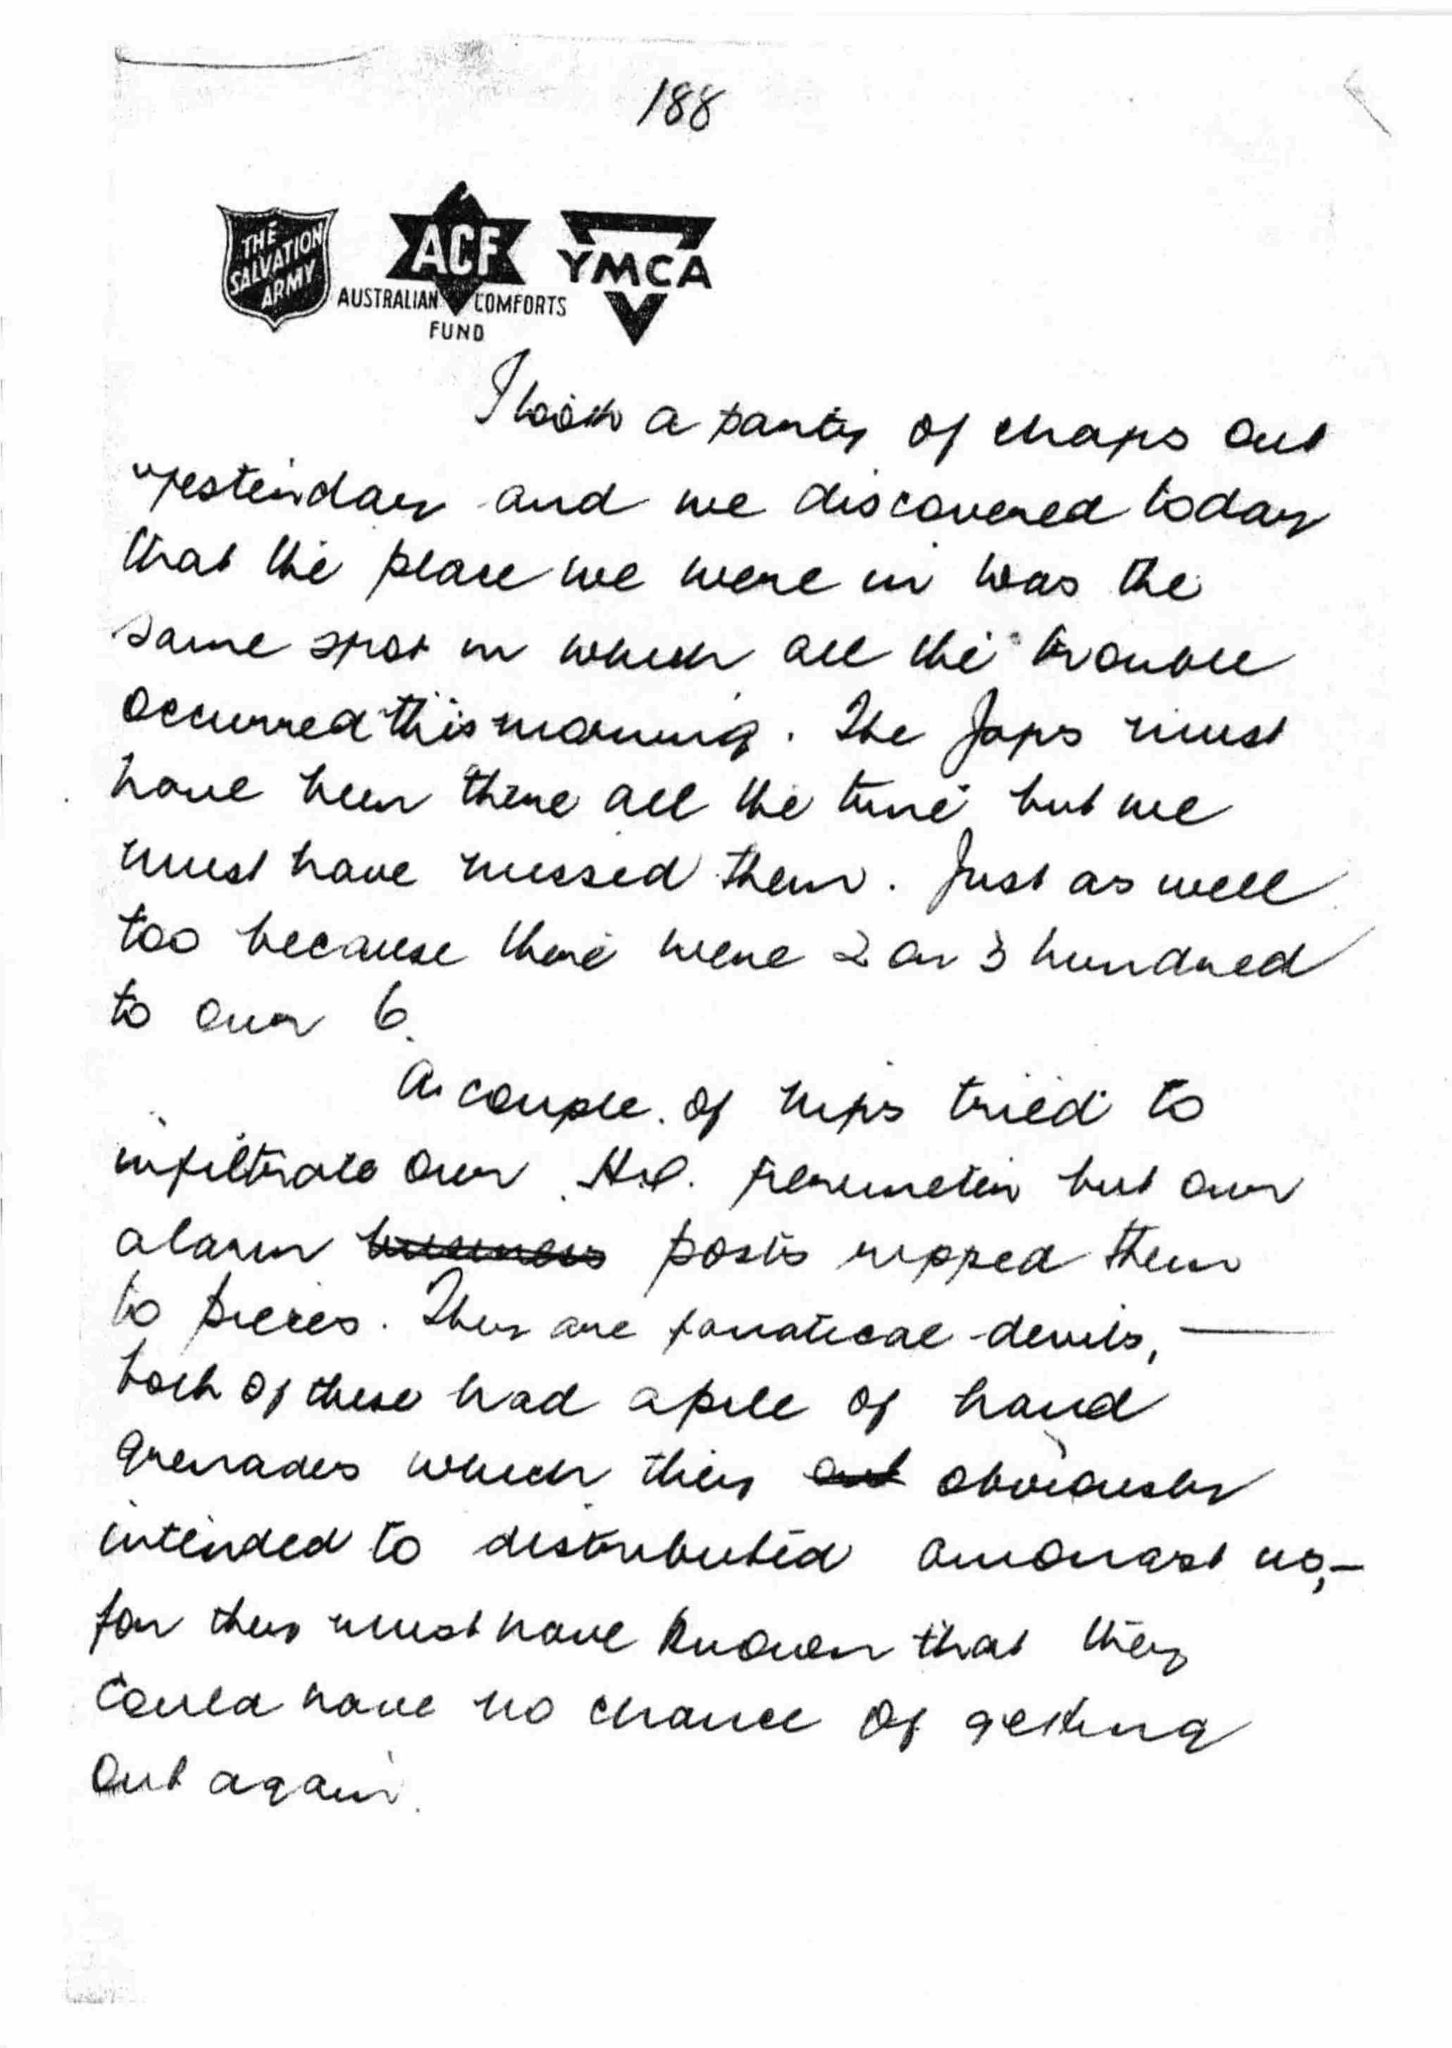 188
THE
SALVATION
ARMY
ACF
AUSTRALIAN COMFORTS
FUND
YMCA
I took a party of chaps out
yesterday and we discovered today
that the place we were in was the
same spot in which all the trouble
occurred this morning. The Japs must
have been there all the time but we
must have missed them. Just as well
too because there were 2 or 3 hundred
to our 6.
A couple of nips tried to
infiltrate our H.Q. perimeter but our
alarm business posts ripped them
to pieces. They are fanatical devils, —
both of these had a pile of hand
grenades which they out obviously
intended to distributed amongst us,-
for they must have known that they
could have no chance of getting
out again.